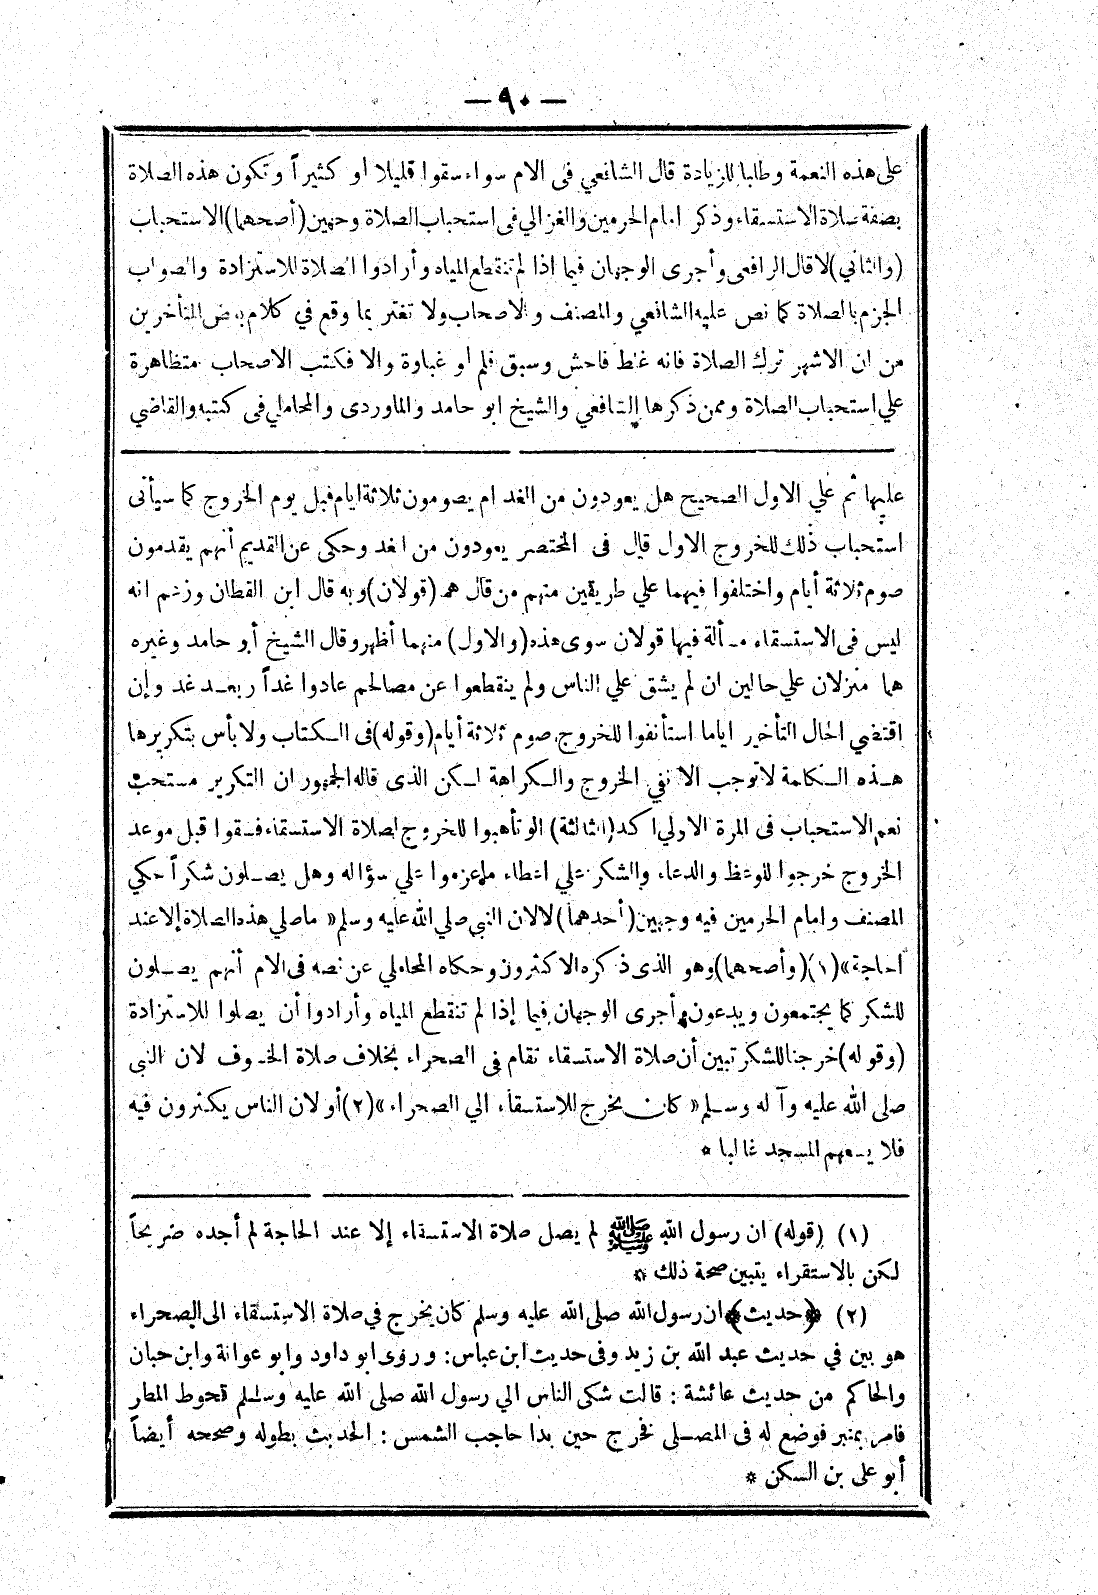 — ٩٠ —
على هذه النعمة وطلبا للزيادة قال الشافعي فى الام سواء سقوا قليلا او كثيراً وتكون هذه الصلاة
بصفة صلاة الاستسقاء وذكر امام الحرمين والغزالي فى استحباب الصلاة وجهين (أصحهما) الاستحباب
(والثاني) لا قال الرافعى وأجرى الوجهان فيما اذا لم تنقطع المياه وأرادوا الصلاة للاستزادة والصواب
الجزم بالصلاة كما نص عليه الشافعي والمصنف والاصحاب ولا تغتر بما وقع في كلام بعض المتأخرين
من ان الاشهر ترك الصلاة فانه غلط فاحش وسبق قلم او غباوة والا فكتب الاصحاب متظاهرة
علي استحباب الصلاة وممن ذكرها الشافعي والشيخ ابو حامد والماوردى والمحاملي فى كتبه والقاضي
عليها ثم علي الاول الصحيح هل يعودون من الغد ام يصومون ثلاثة ايام قبل يوم الخروج كما سيأتى
استحباب ذلك للخروج الاول قال فى المختصر يعودون من الغد وحكى عن القديم أنهم يقدمون
صوم ثلاثة أيام واختلفوا فيهما علي طريقين منهم من قال هما (قولان) وبه قال ابن القطان وزعم انه
ليس فى الاستسقاء مسألة فيها قولان سوى هذه (والاول) منهما أظهر وقال الشيخ أبو حامد وغيره
هما منزلان علي حالين ان لم يشق علي الناس ولم ينقطعوا عن مصالحهم عادوا غداً وبعد غد وإن
اقتضي الحال التأخير اياما استأنفوا للخروج صوم ثلاثة أيام (وقوله) فى الكتاب ولا بأس بتكريرها
هذه الكلمة لا توجب الا نفي الخروج والكراهة لكن الذى قاله الجمهور ان التكرير مستحب
نعم الاستحباب فى المرة الاولي اكد (الثالثة) لو تأهبوا للخروج لصلاة الاستسقاء فسقوا قبل موعد
الخروج خرجوا للوعظ والدعاء والشكر علي اعطاء ما عزموا علي سؤاله وهل يصلون شكراً حكي
المصنف وامام الحرمين فيه وجهين (أحدهما) لا لان النبي صلي الله عليه وسلم « ماصلي هذه الصلاة إلا عند
الحاجة » (١) (وأصحهما) وهو الذى ذكره الاكثرون وحكاه المحاملي عن نصه فى الام أنهم يصلون
للشكر كما يجتمعون ويدعون وأجرى الوجهان فيما إذا لم تنقطع المياه وأرادوا أن يصلوا للاستزادة
(وقوله) خرجنا للشكر تبين أن صلاة الاستسقاء تقام فى الصحراء بخلاف صلاة الخسوف لان النبي
صلى الله عليه وآله وسلم « كان يخرج للاستسقاء الي الصحراء » (٢) أو لان الناس يكثرون فيه
فلا يسعهم المسجد غالبا *
(١) (قوله) ان رسول الله ﷺ لم يصل صلاة الاستسقاء إلا عند الحاجة لم أجده صريحاً
لكن بالاستقراء يتبين صحة ذلك *
(٢) ﴿حديث﴾ ان رسول الله صلى الله عليه وسلم كان يخرج في صلاة الاستسقاء الى الصحراء
هو بين في حديث عبد الله بن زيد وفى حديث ابن عباس : وروى ابو داود وابو عوانة وابن حبان
والحاكم من حديث عائشة : قالت شكى الناس الي رسول الله صلى الله عليه وسلم قحوط المطر
فامر بمنبر فوضع له فى المصلى فخرج حين بدا حاجب الشمس : الحديث بطوله وصححه أيضاً
أبو على بن السكن *